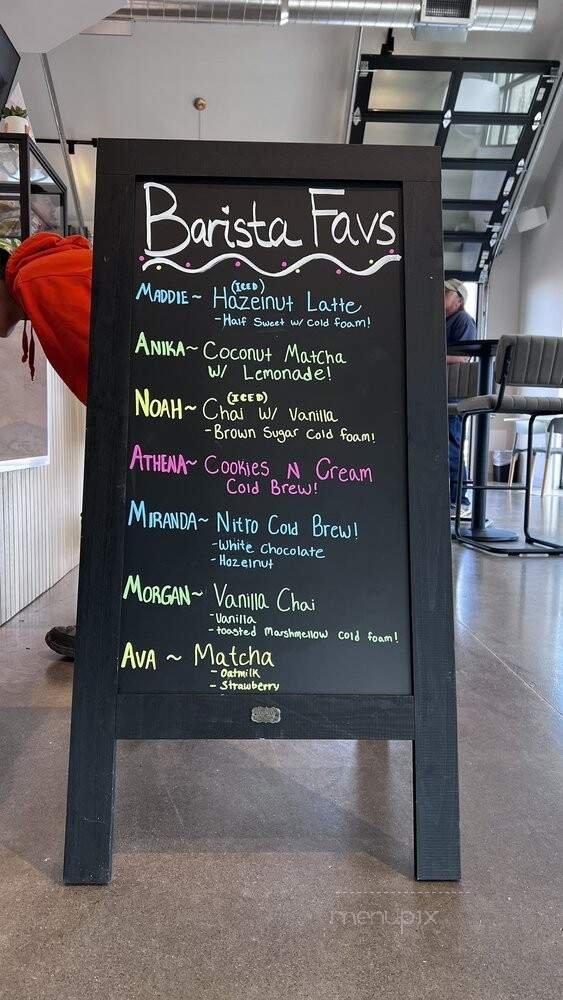 Barista Favs
MADDIE~ (ICED) Hazelnut Latte
-Half Sweet w/ cold foam!
ANIKA~ Coconut Matcha
w/ Lemonade!
NOAH~ (ICED) Chai w/ Vanilla
-Brown Sugar cold foam!
ATHENA~ Cookies N Cream
Cold Brew!
MIRANDA~ Nitro Cold Brew!
-White Chocolate
-Hazelnut
MORGAN~ Vanilla Chai
-Vanilla
-toasted Marshmellow cold foam!
AVA ~ Matcha
- Oatmilk
- Strawberry
menupix